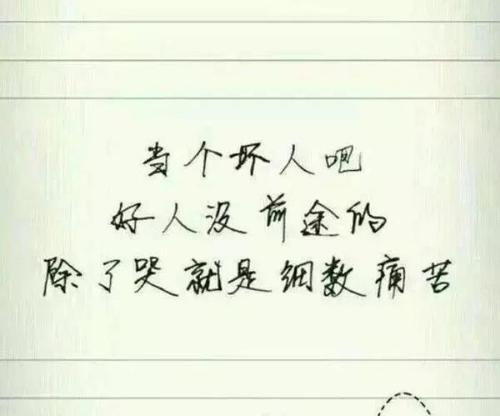 当个坏人吧
好人没前途的
除了哭就是细数痛苦